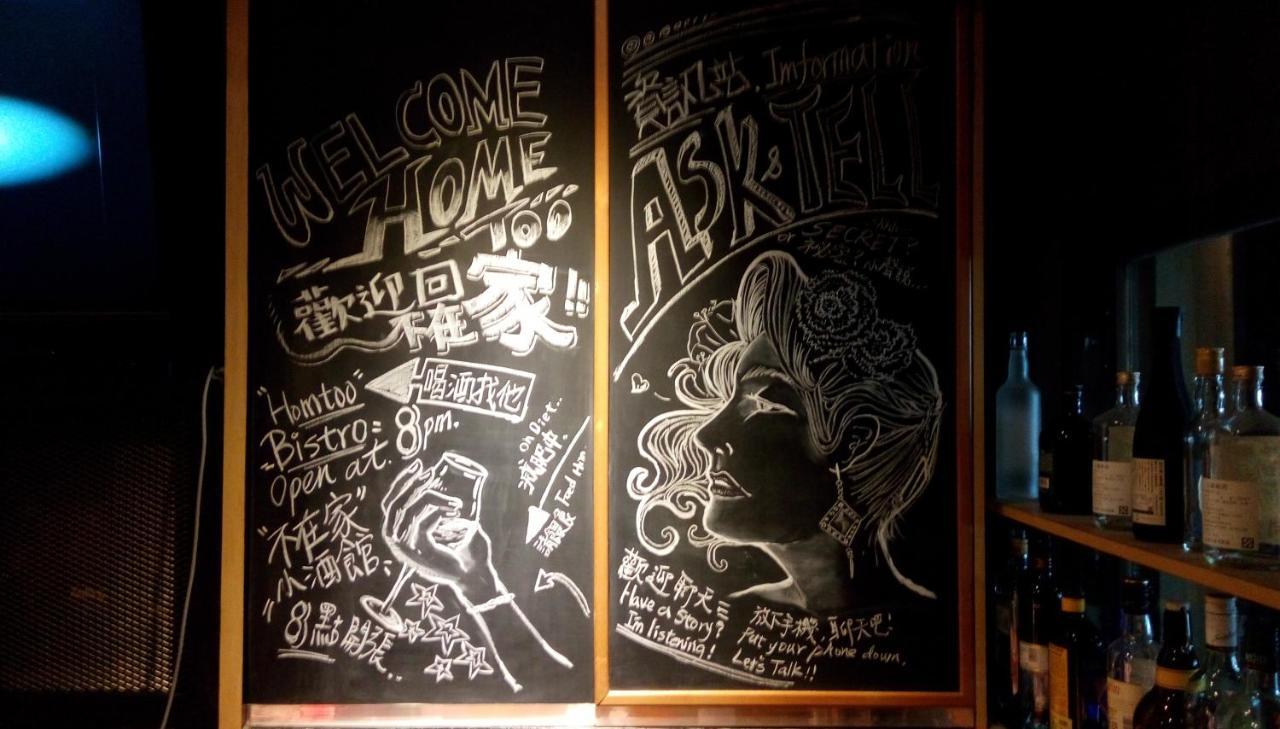 WELCOME
HOME
TOO
歡迎回家!!
不在
喝酒找他
"Homtoo"
Bistro
Open at 8pm.
on Diet..
減肥中.
請餵食 Feed Him
"不在家"
小酒館、
8點開張..
資訊站. Imformation
ASK & TELL
or SECRET?
秘密?
歡迎聊天
Have a Story?
I'm listening!
放下手機, 聊天吧!
Put your phone down.
Let's Talk!!